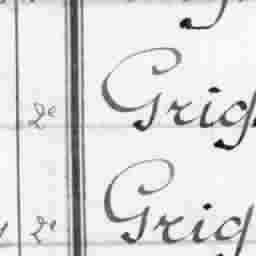 2e Grig
2e Grig